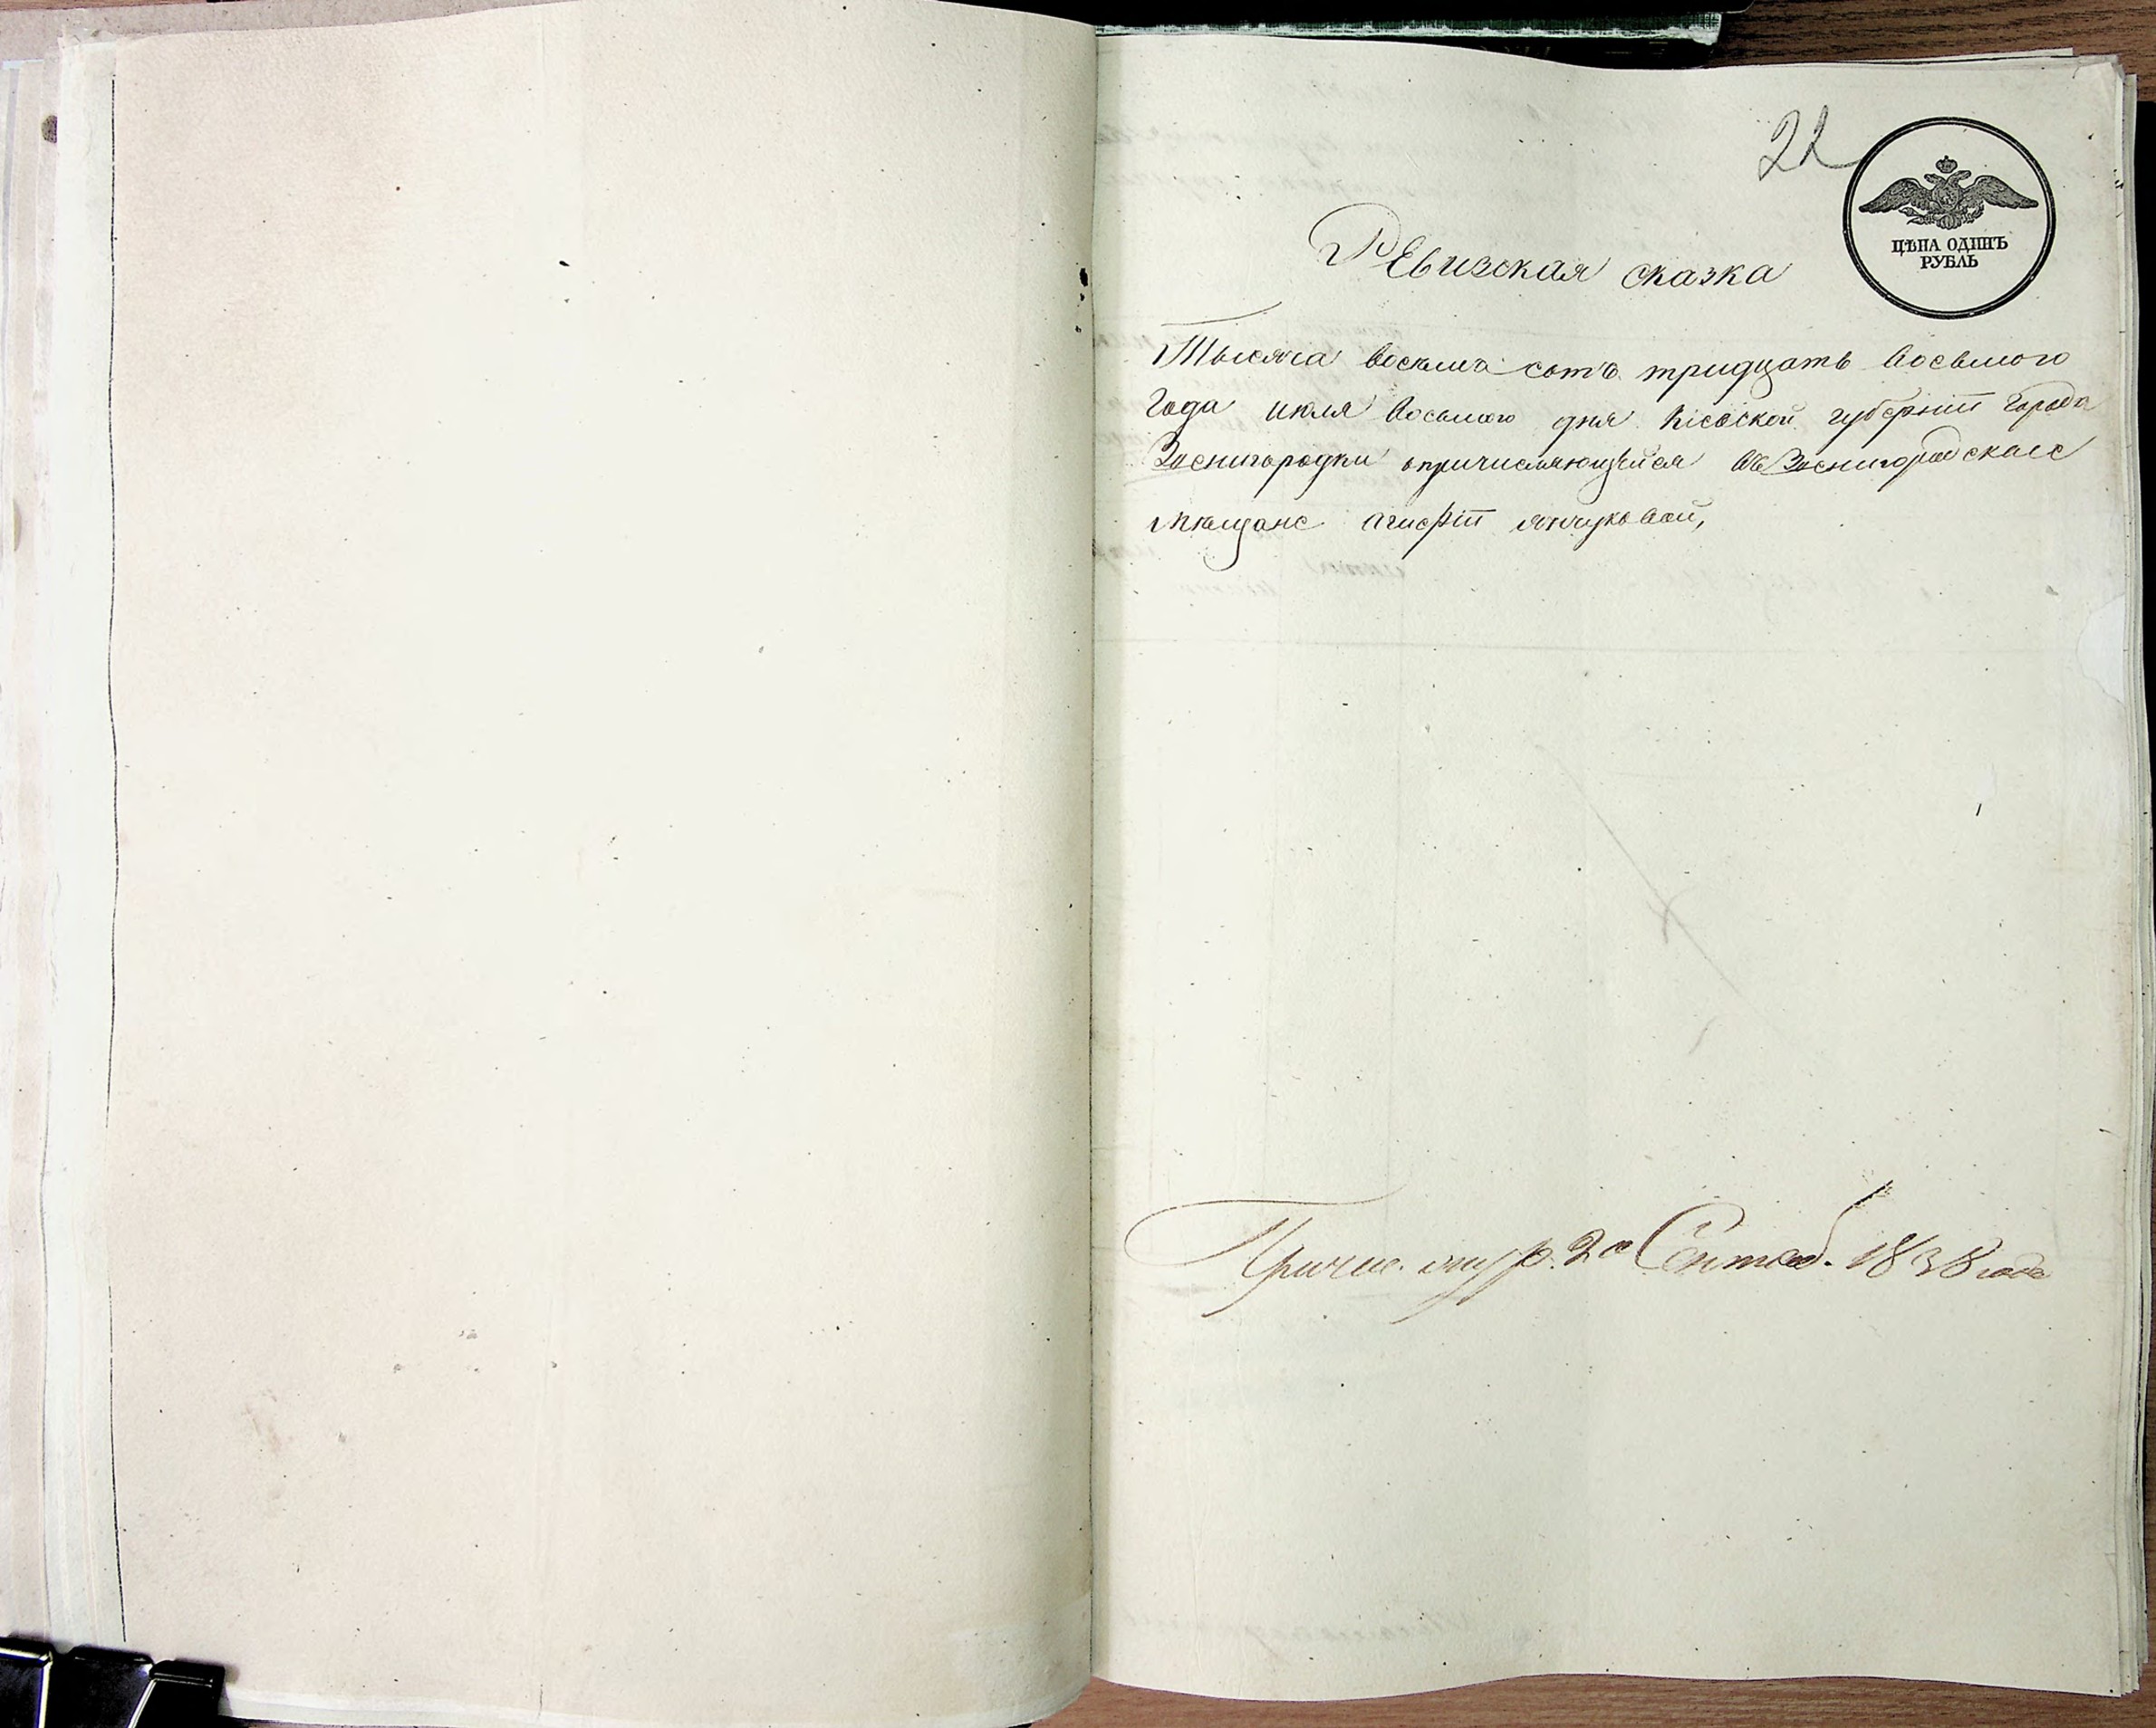 22
ЦѢНА ОДИНЪ
РУБЛЬ
Ревизская сказка
Тысяча восемь сотъ тридцать восьмого
года июля восьмого дня Кіевской губерніи города
Звенигородки опричисляющейся въ Звенигородскіе
мѣщане
2го Сентяб. 1838 года